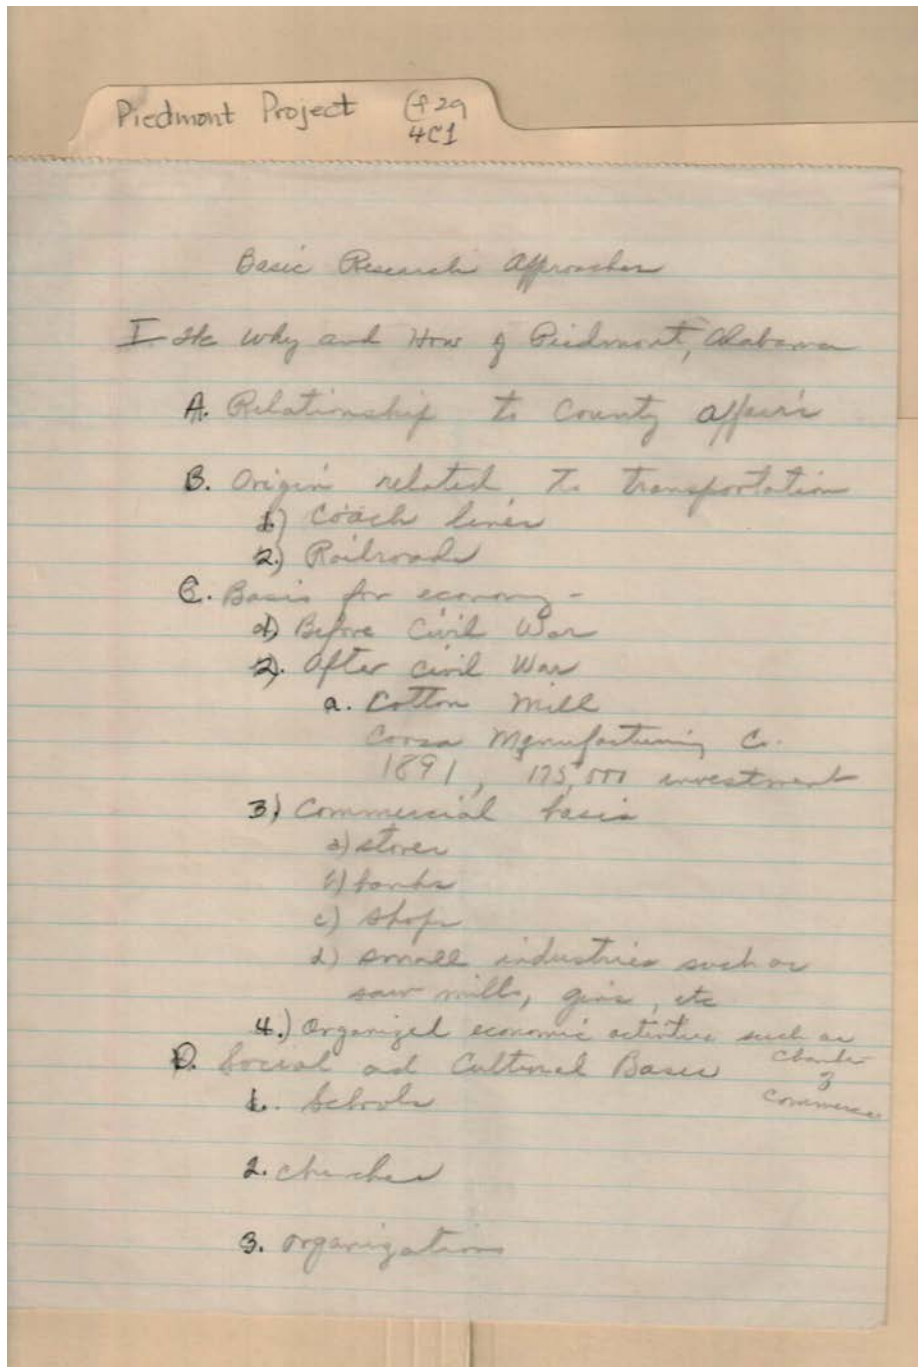 Piedmont Project (f29
4C1
Basic Research Approaches
I. The Why and How of Piedmont, Alabama
A. Relationship to County affairs
B. Origin related to transportation
1) Coach lines
2.) Railroads
C. Basis for economy -
1) Before Civil War
2). After Civil War
a. Cotton Mill
Coosa Manufacturing Co.
1891, 175,000 investment
3) Commercial basis
a) stores
b) banks
c) shops
d) small industries such as
saw mills, gins, etc
4.) Organized economic activities such as
Chamber
of
Commerce
D. Social and Cultural Bases
1. Schools
2. Churches
3. Organizations